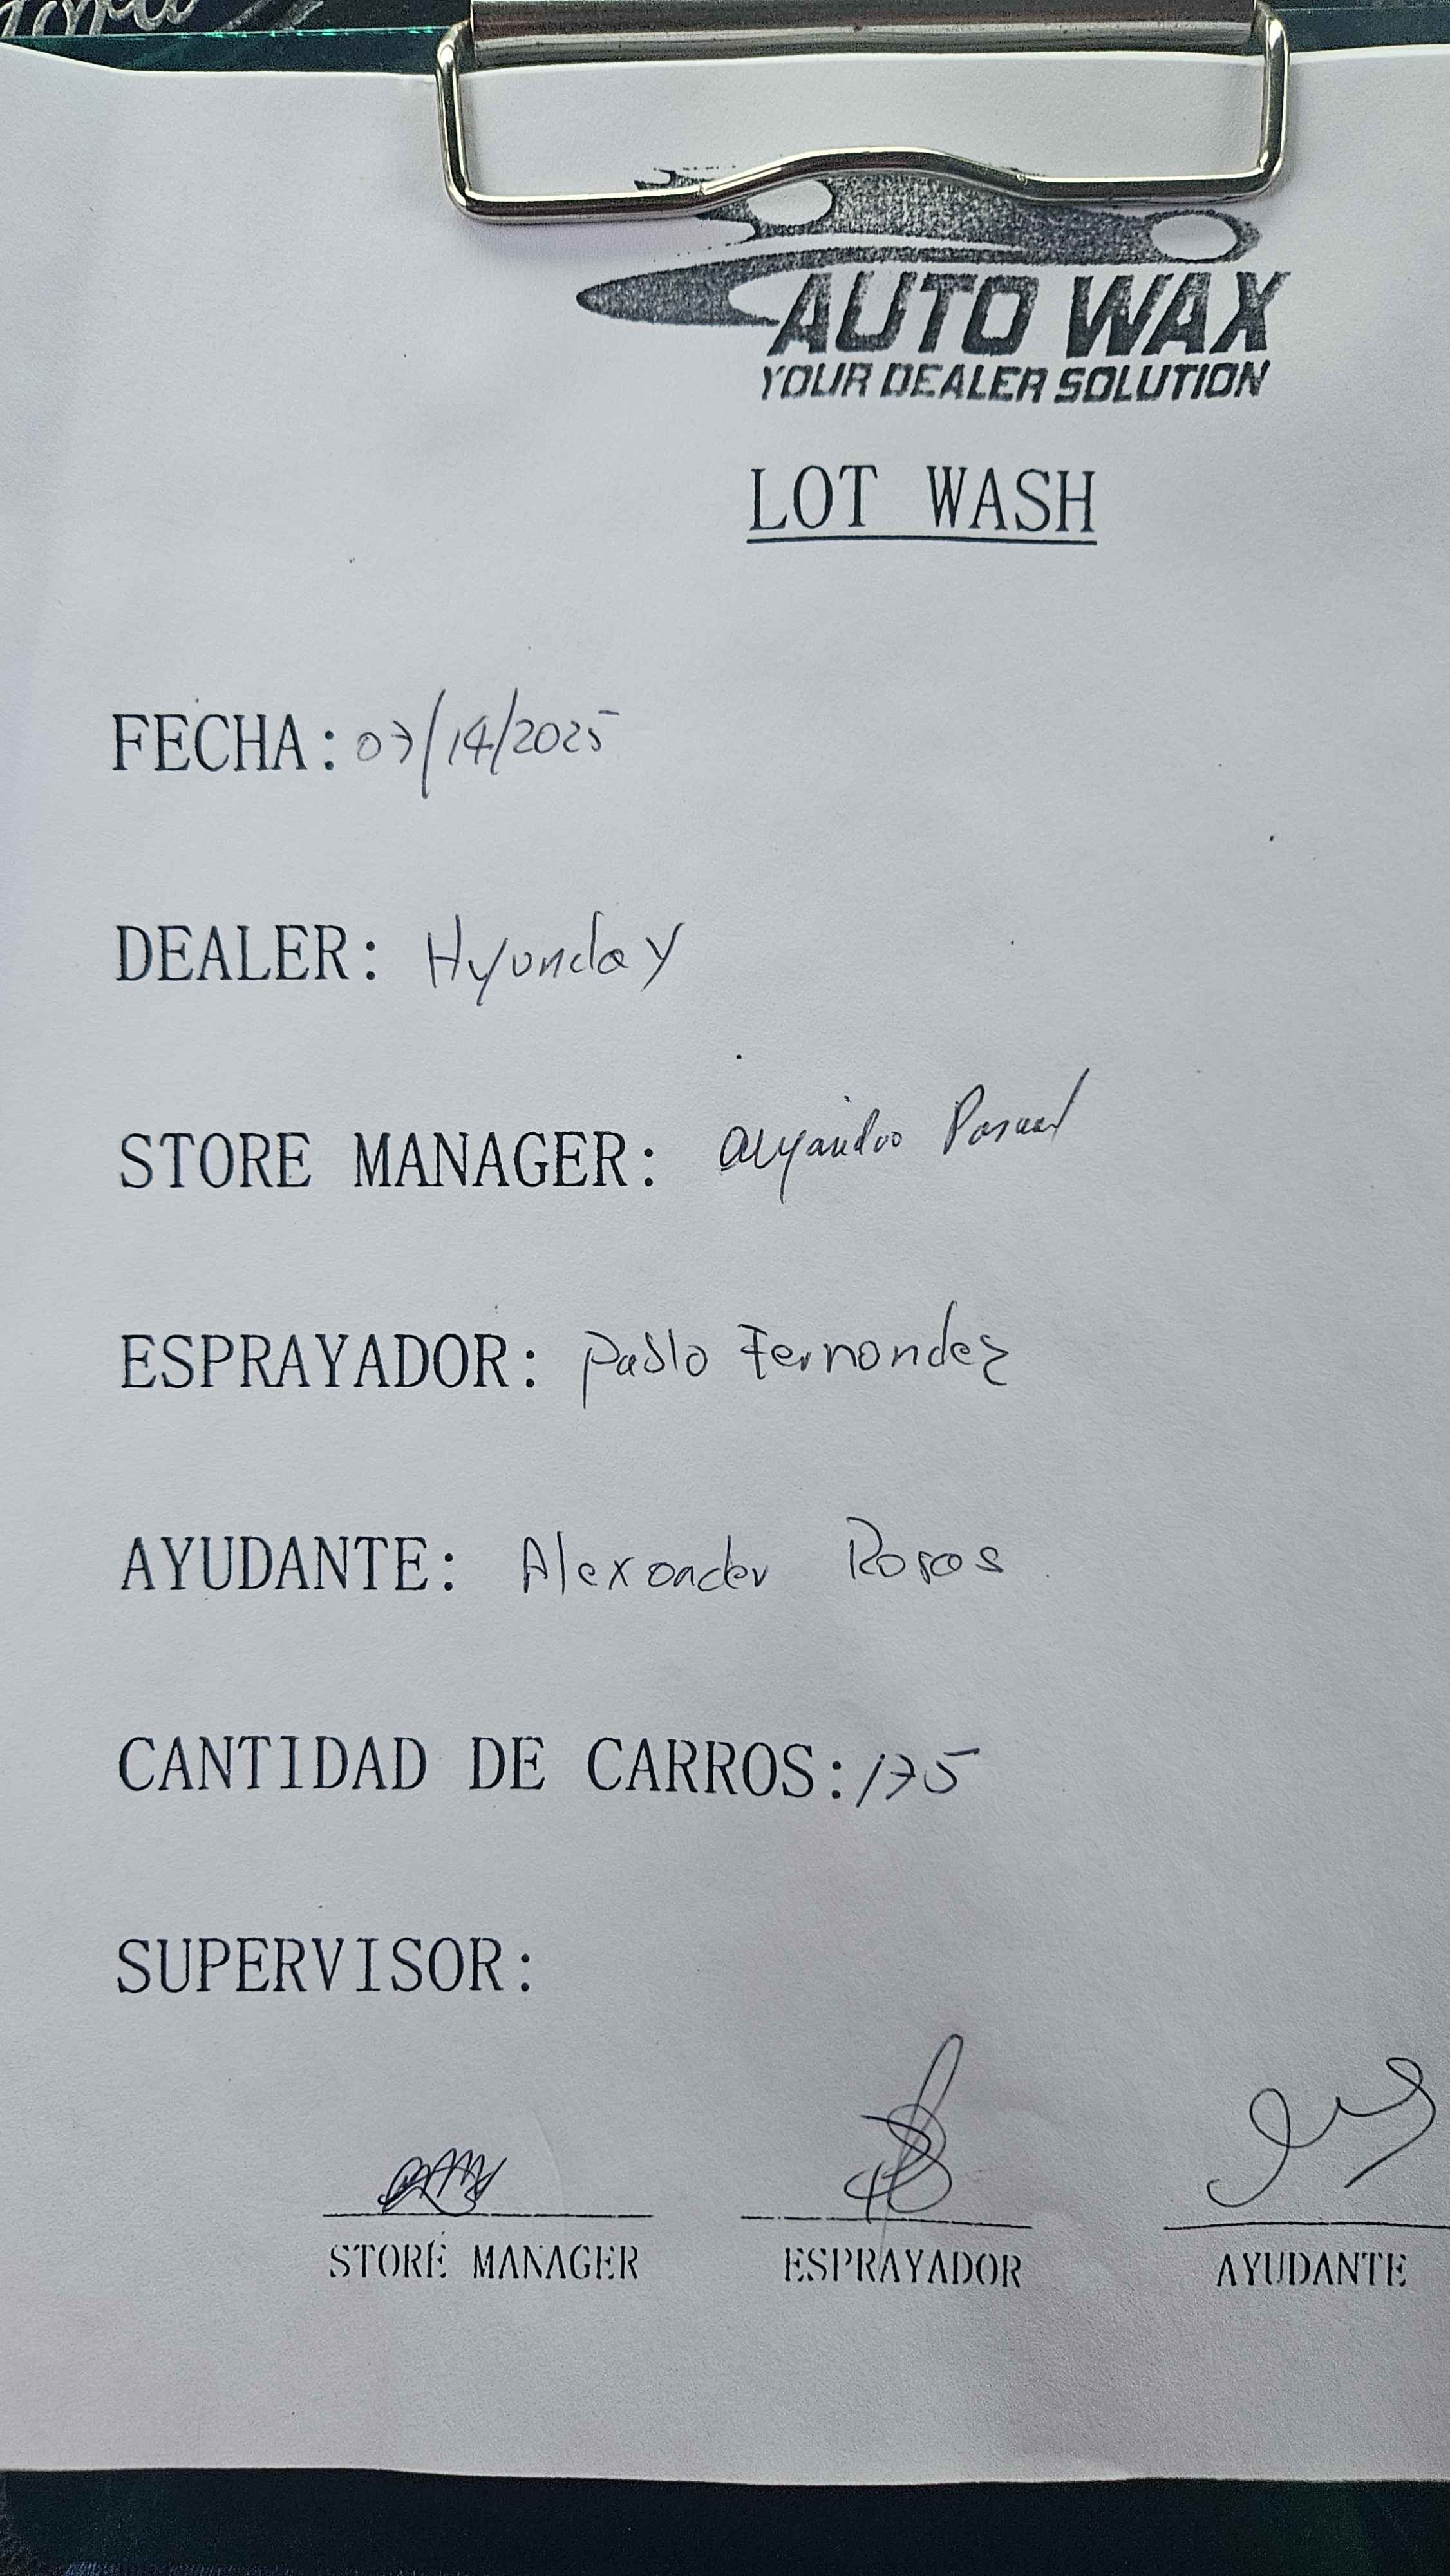 AUTO WAX
YOUR DEALER SOLUTION
LOT WASH
FECHA: 07/14/2025
DEALER: Hyunday
STORE MANAGER: Alejandro
ESPRAYADOR: Pablo Fernandez
AYUDANTE: Alexander Rosas
CANTIDAD DE CARROS: 175
SUPERVISOR:
STORE MANAGER ESPRAYADOR AYUDANTE